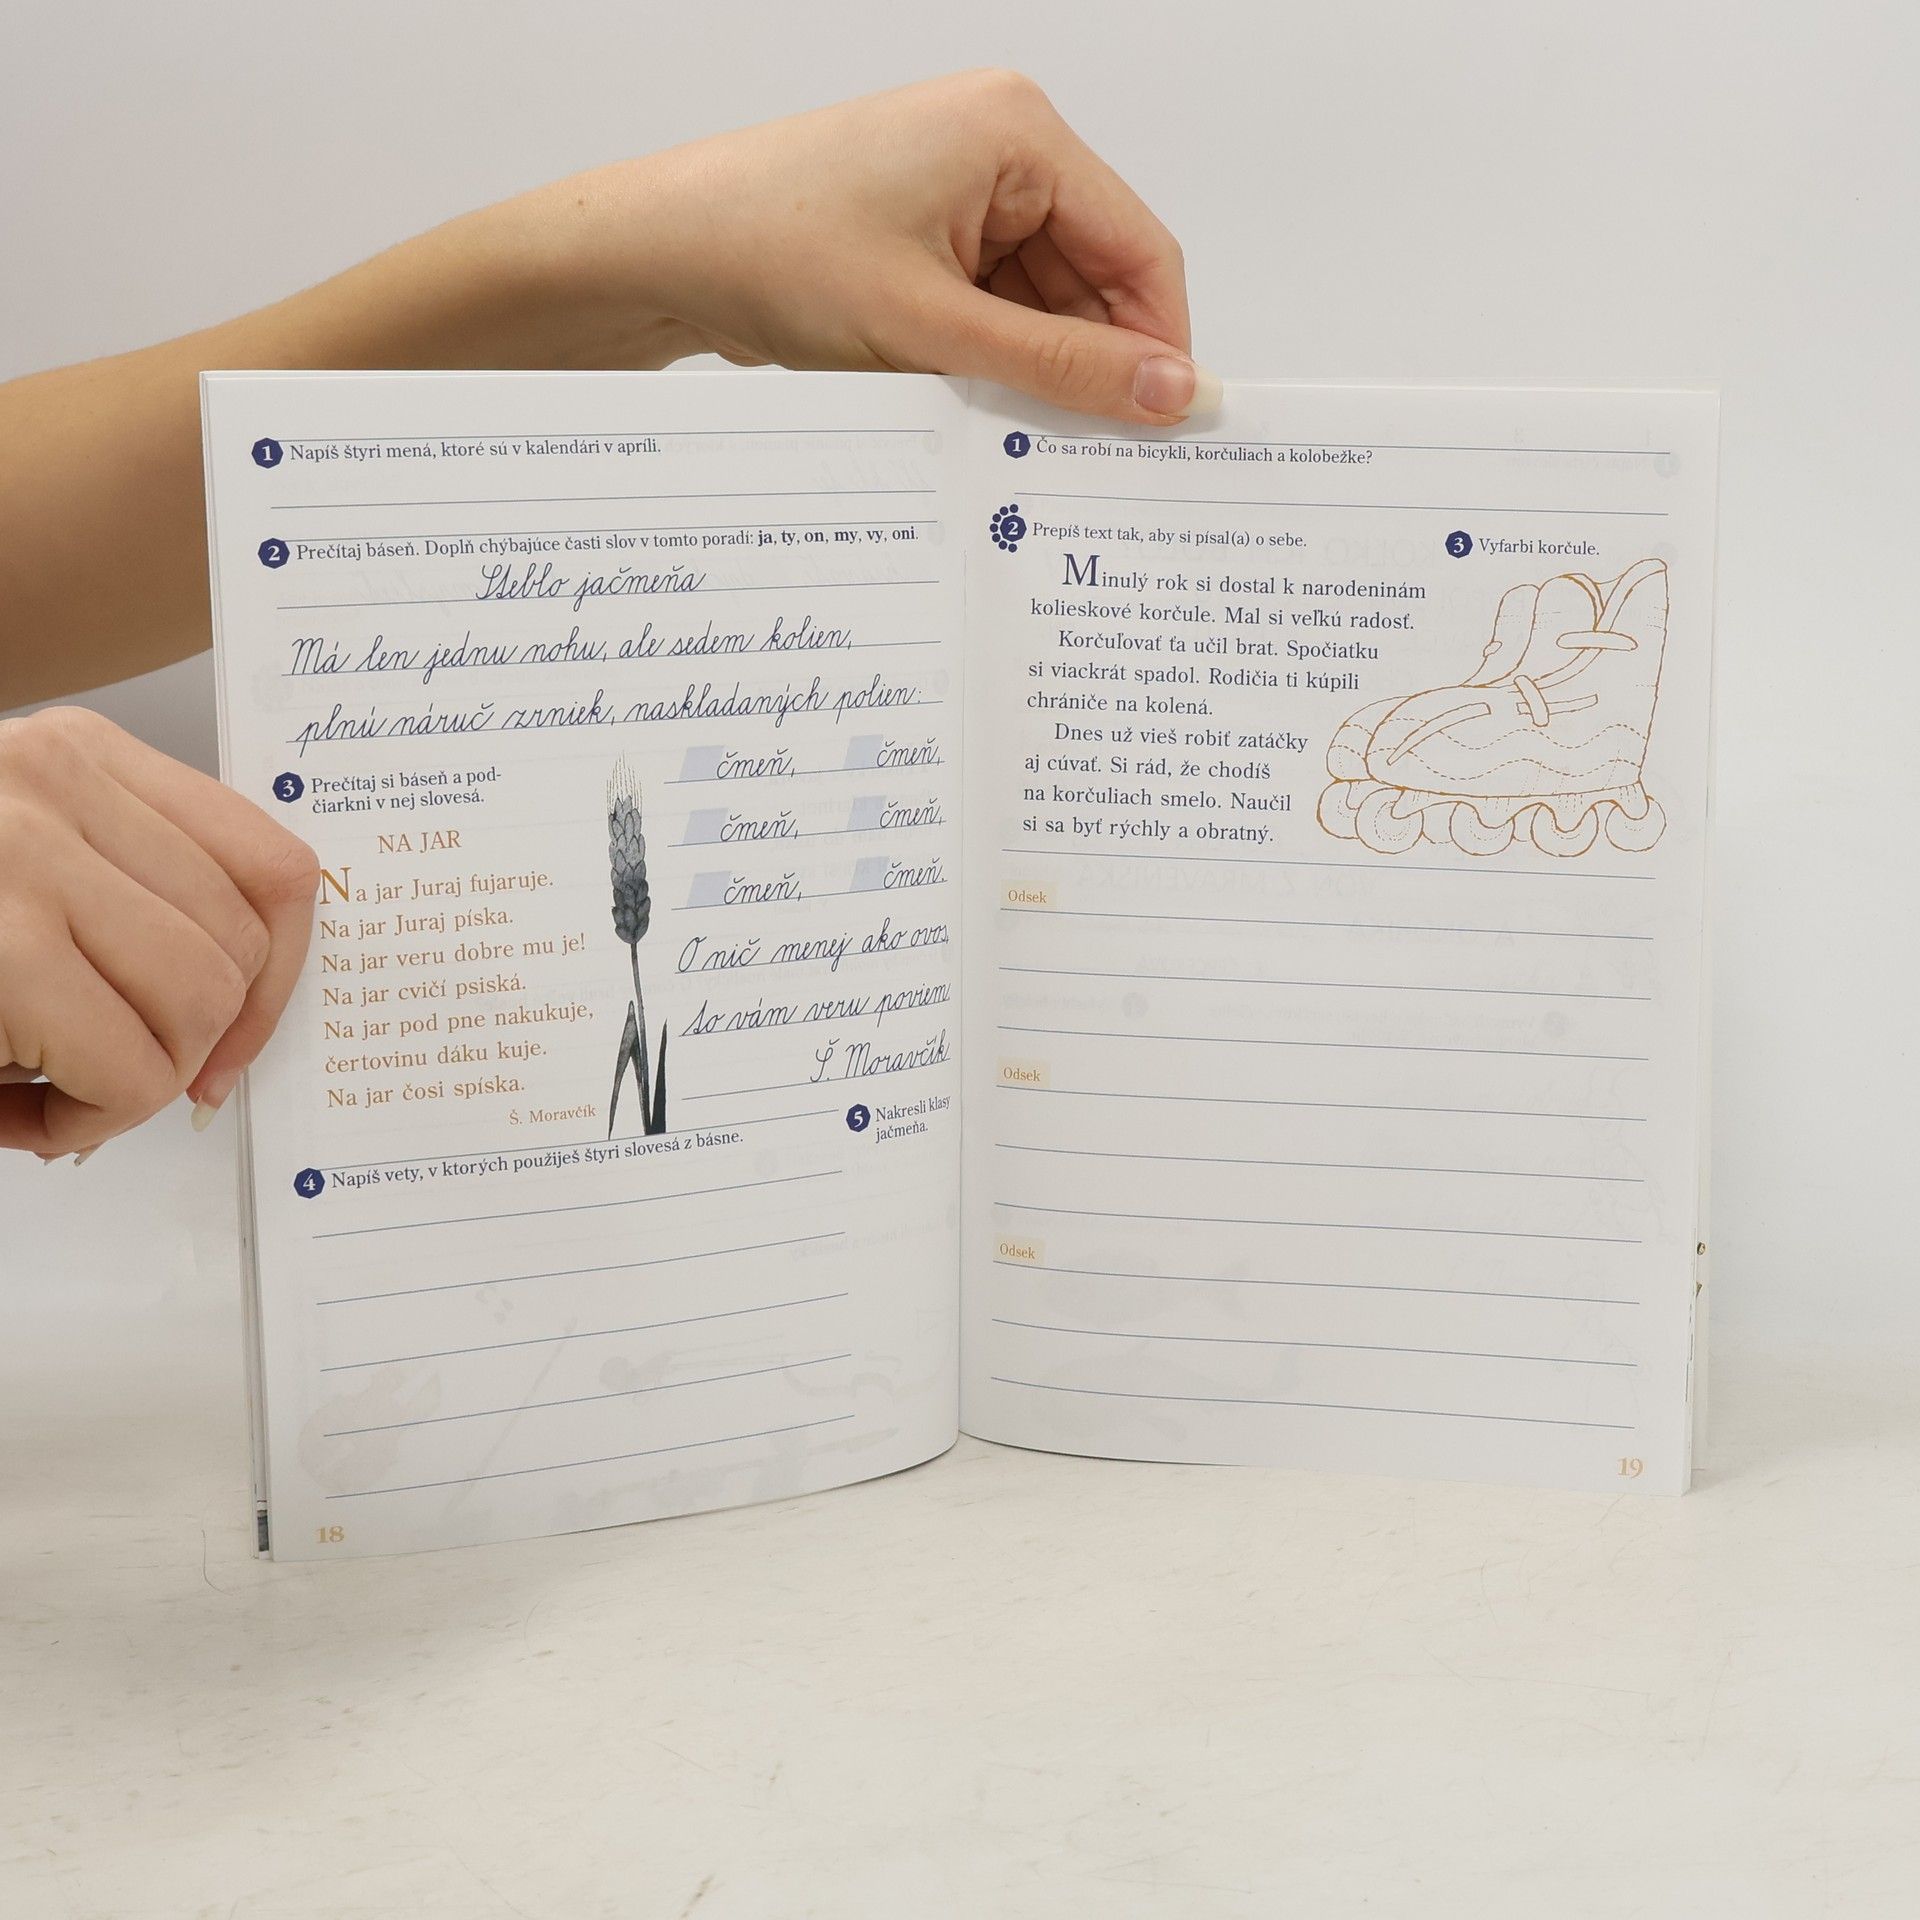 1 Napíš štyri mená, ktoré sú v kalendári v apríli.
2 Prečítaj báseň. Doplň chýbajúce časti slov v tomto poradí: ja, ty, on, my, vy, oni.
Steblo jačmeňa
Má len jednu nohu, ale sedem kolien,
plnú náruč zrniek, naskladaných polien:
čmeň, čmeň,
čmeň, čmeň,
čmeň, čmeň.
O nič menej ako ovos,
to vám veru poviem
Š. Moravčík
3 Prečítaj si báseň a pod-
čiarkni v nej slovesá.
NA JAR
Na jar Juraj fujaruje.
Na jar Juraj píska.
Na jar veru dobre mu je!
Na jar cvičí psiská.
Na jar pod pne nakukuje,
čertovinu dáku kuje.
Na jar čosi spíska.
Š. Moravčík
4 Napíš vety, v ktorých použiješ štyri slovesá z básne.
5 Nakresli klasy
jačmeňa.
18
1 Čo sa robí na bicykli, korčuliach a kolobežke?
2 Prepíš text tak, aby si písal(a) o sebe.
3 Vyfarbi korčule.
Minulý rok si dostal k narodeninám
kolieskové korčule. Mal si veľkú radosť.
Korčuľovať ťa učil brat. Spočiatku
si viackrát spadol. Rodičia ti kúpili
chrániče na kolená.
Dnes už vieš robiť zatáčky
aj cúvať. Si rád, že chodíš
na korčuliach smelo. Naučil
si sa byť rýchly a obratný.
Odsek
Odsek
Odsek
19